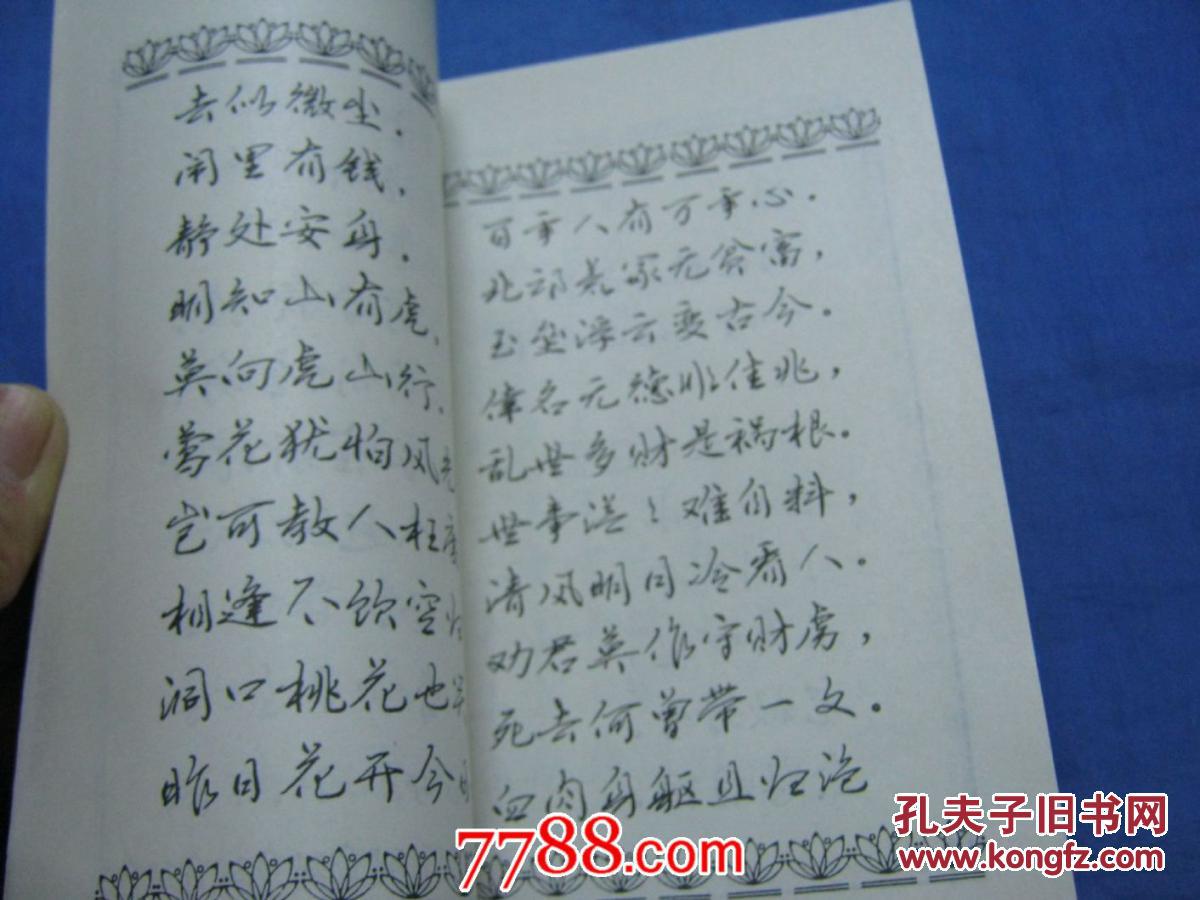 去似微尘.
闹里有钱,
静处安身.
明知山有虎,
莫向虎山行.
莺花犹怕风光
岂可教人枉度
相逢不饮空归
洞口桃花也笑
昨日花开今日
百年人有万年心.
北邙荒冢无贫富,
玉垒浮云变古今.
佳兆,
乱世多财是祸根。
世事茫々难自料,
清风明月冷看人。
劝君莫作守财虏,
死去何曾带一文。
血肉身躯且归泡
7788.com
孔夫子旧书网
www.kongfz.com